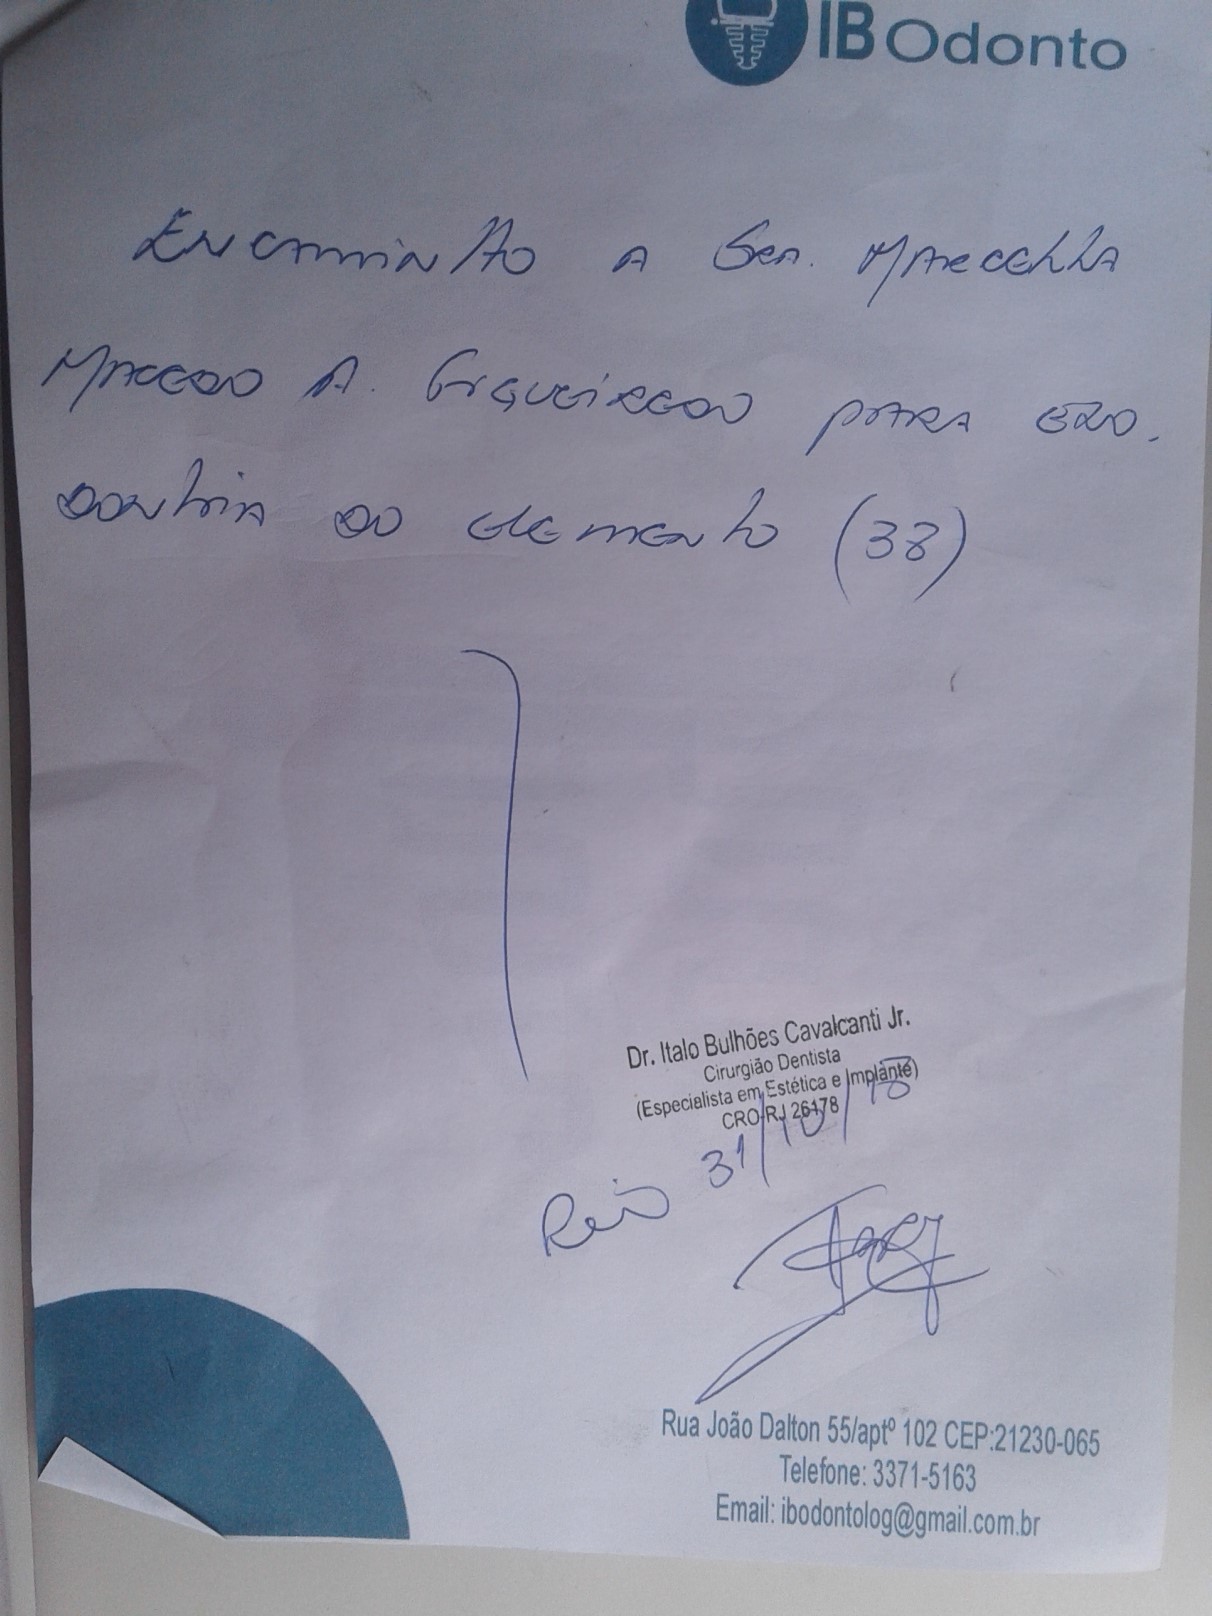 IB Odonto
Encaminho a Sra. Marcella
Macedo A. Figueiredo para exo.
dontia do elemento (38)
Dr. Italo Bulhões Cavalcanti Jr.
Cirurgião Dentista
(Especialista em Estética e Implante)
CRO-RJ 26178
Rio 31/10/18
Rua João Dalton 55/aptº 102 CEP:21230-065
Telefone: 3371-5163
Email: ibodontolog@gmail.com.br